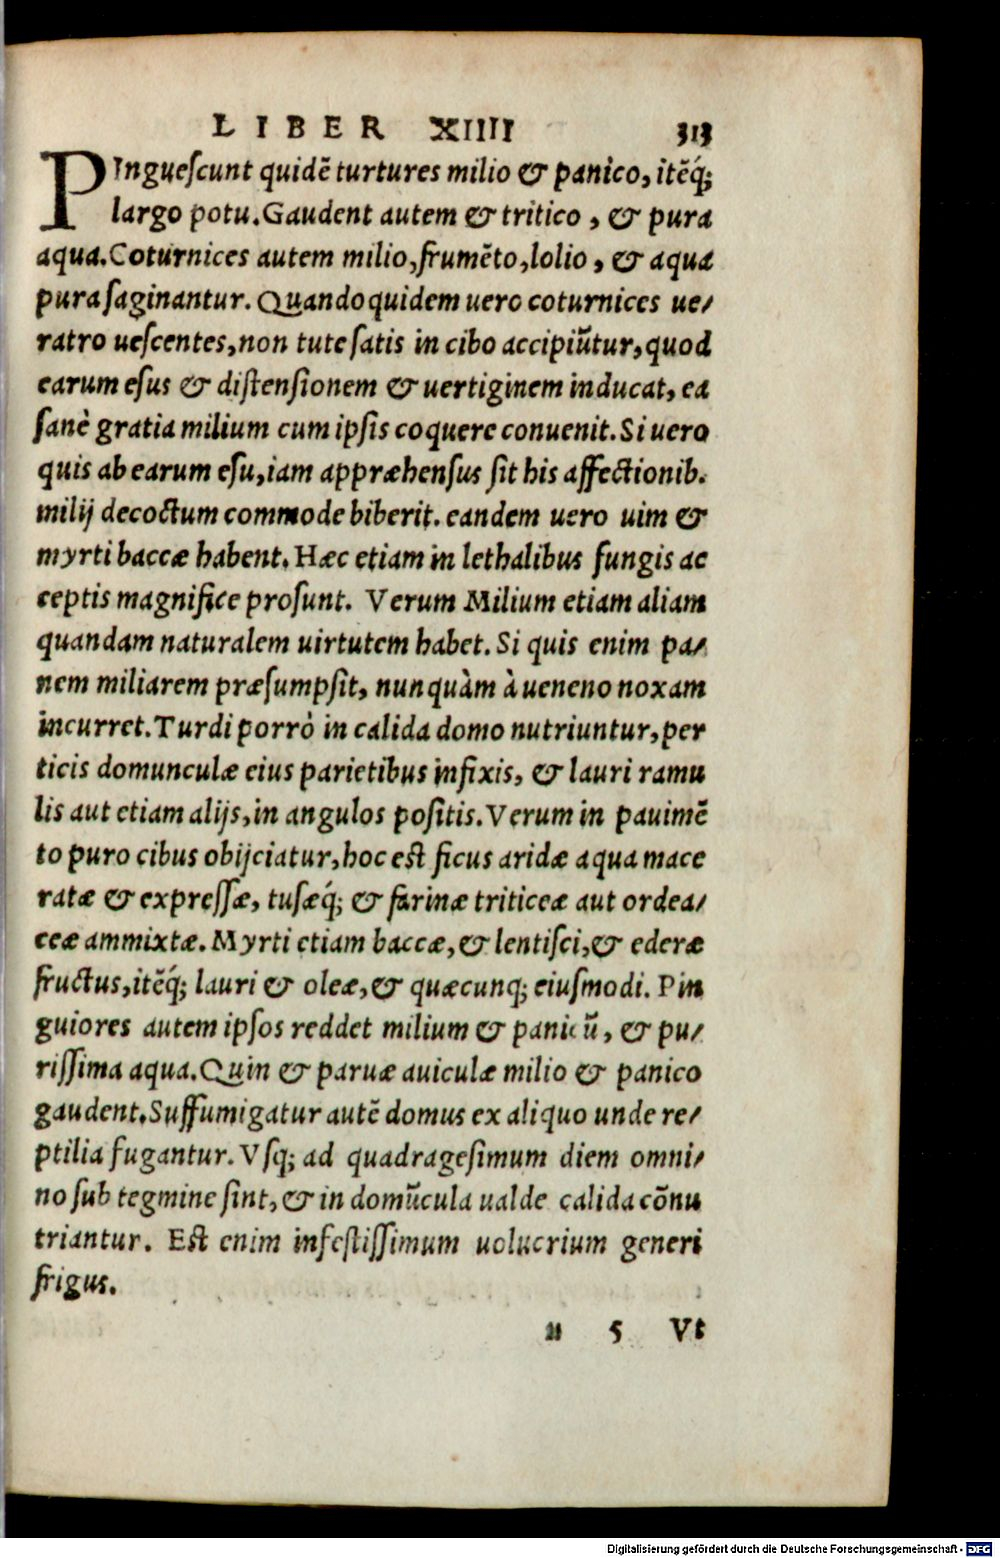 LIBER XIIII 313
PIngueſcunt quidē turtures milio & panico, itēq́;
largo potu. Gaudent autem & tritico, & pura
aqua. Coturnices autem milio, frumēto, lolio, & aqua
pura ſaginantur. Quandoquidem uero coturnices ue⸗
ratro ueſcentes, non tute ſatis in cibo accipiūtur, quod
earum eſus & diſtenſionem & uertiginem inducat, ea
ſanè gratia milium cum ipſis coquere conuenit. Si uero
quis ab earum eſu, iam appræhenſus ſit his affectionib.
milij decoctum commode biberit. eandem uero uim &
myrti baccæ habent. Hæc etiam in lethalibus fungis ac
ceptis magnifice proſunt. Verum Milium etiam aliam
quandam naturalem uirtutem habet. Si quis enim pa⸗
nem miliarem præſumpſit, nunquàm à ueneno noxam
incurret. Turdi porrò in calida domo nutriuntur, per
ticis domunculæ eius parietibus infixis, & lauri ramu
lis aut etiam alijs, in angulos poſitis. Verum in pauimē
to puro cibus obijciatur, hoc eſt ficus aridæ aqua mace
ratæ & expreſſæ, tuſæq́; & farinæ triticeæ aut ordea⸗
ceæ ammixtæ. Myrti etiam baccæ, & lentiſci, & ederæ
fructus, itēq́; lauri & oleæ, & quæcunq; eiuſmodi. Pin
guiores autem ipſos reddet milium & panicū, & pu⸗
riſſima aqua. Quin & paruæ auiculæ milio & panico
gaudent. Suffumigatur autē domus ex aliquo unde re⸗
ptilia fugantur. Vſq; ad quadrageſimum diem omni⸗
no ſub tegmine ſint, & in domūcula ualde calida cōnu
triantur. Eſt enim infeſtiſſimum uolucrium generi
frigus.
u 5 Vt
Digitalisierung gefördert durch die Deutsche Forschungsgemeinschaft - DFG